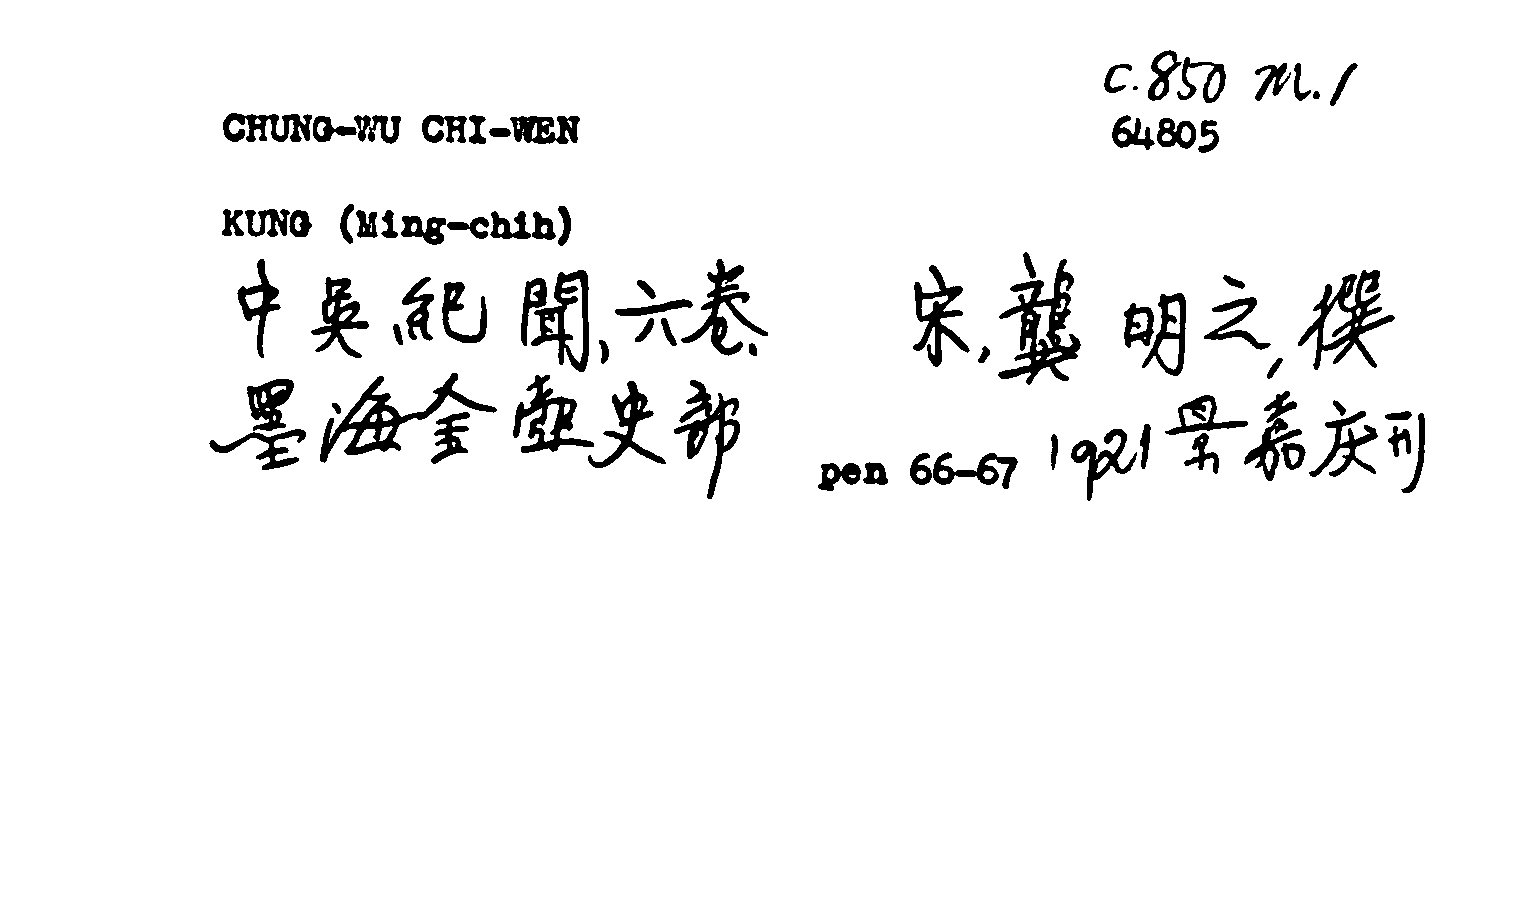 c.850 m.1
64805
CHUNG-WU CHI-WEN
KUNG (Ming-chih)
中吳紀聞、六卷. 宋,龔明之,撰
墨海金壺史部 pen 66-67 1921景嘉庆刊